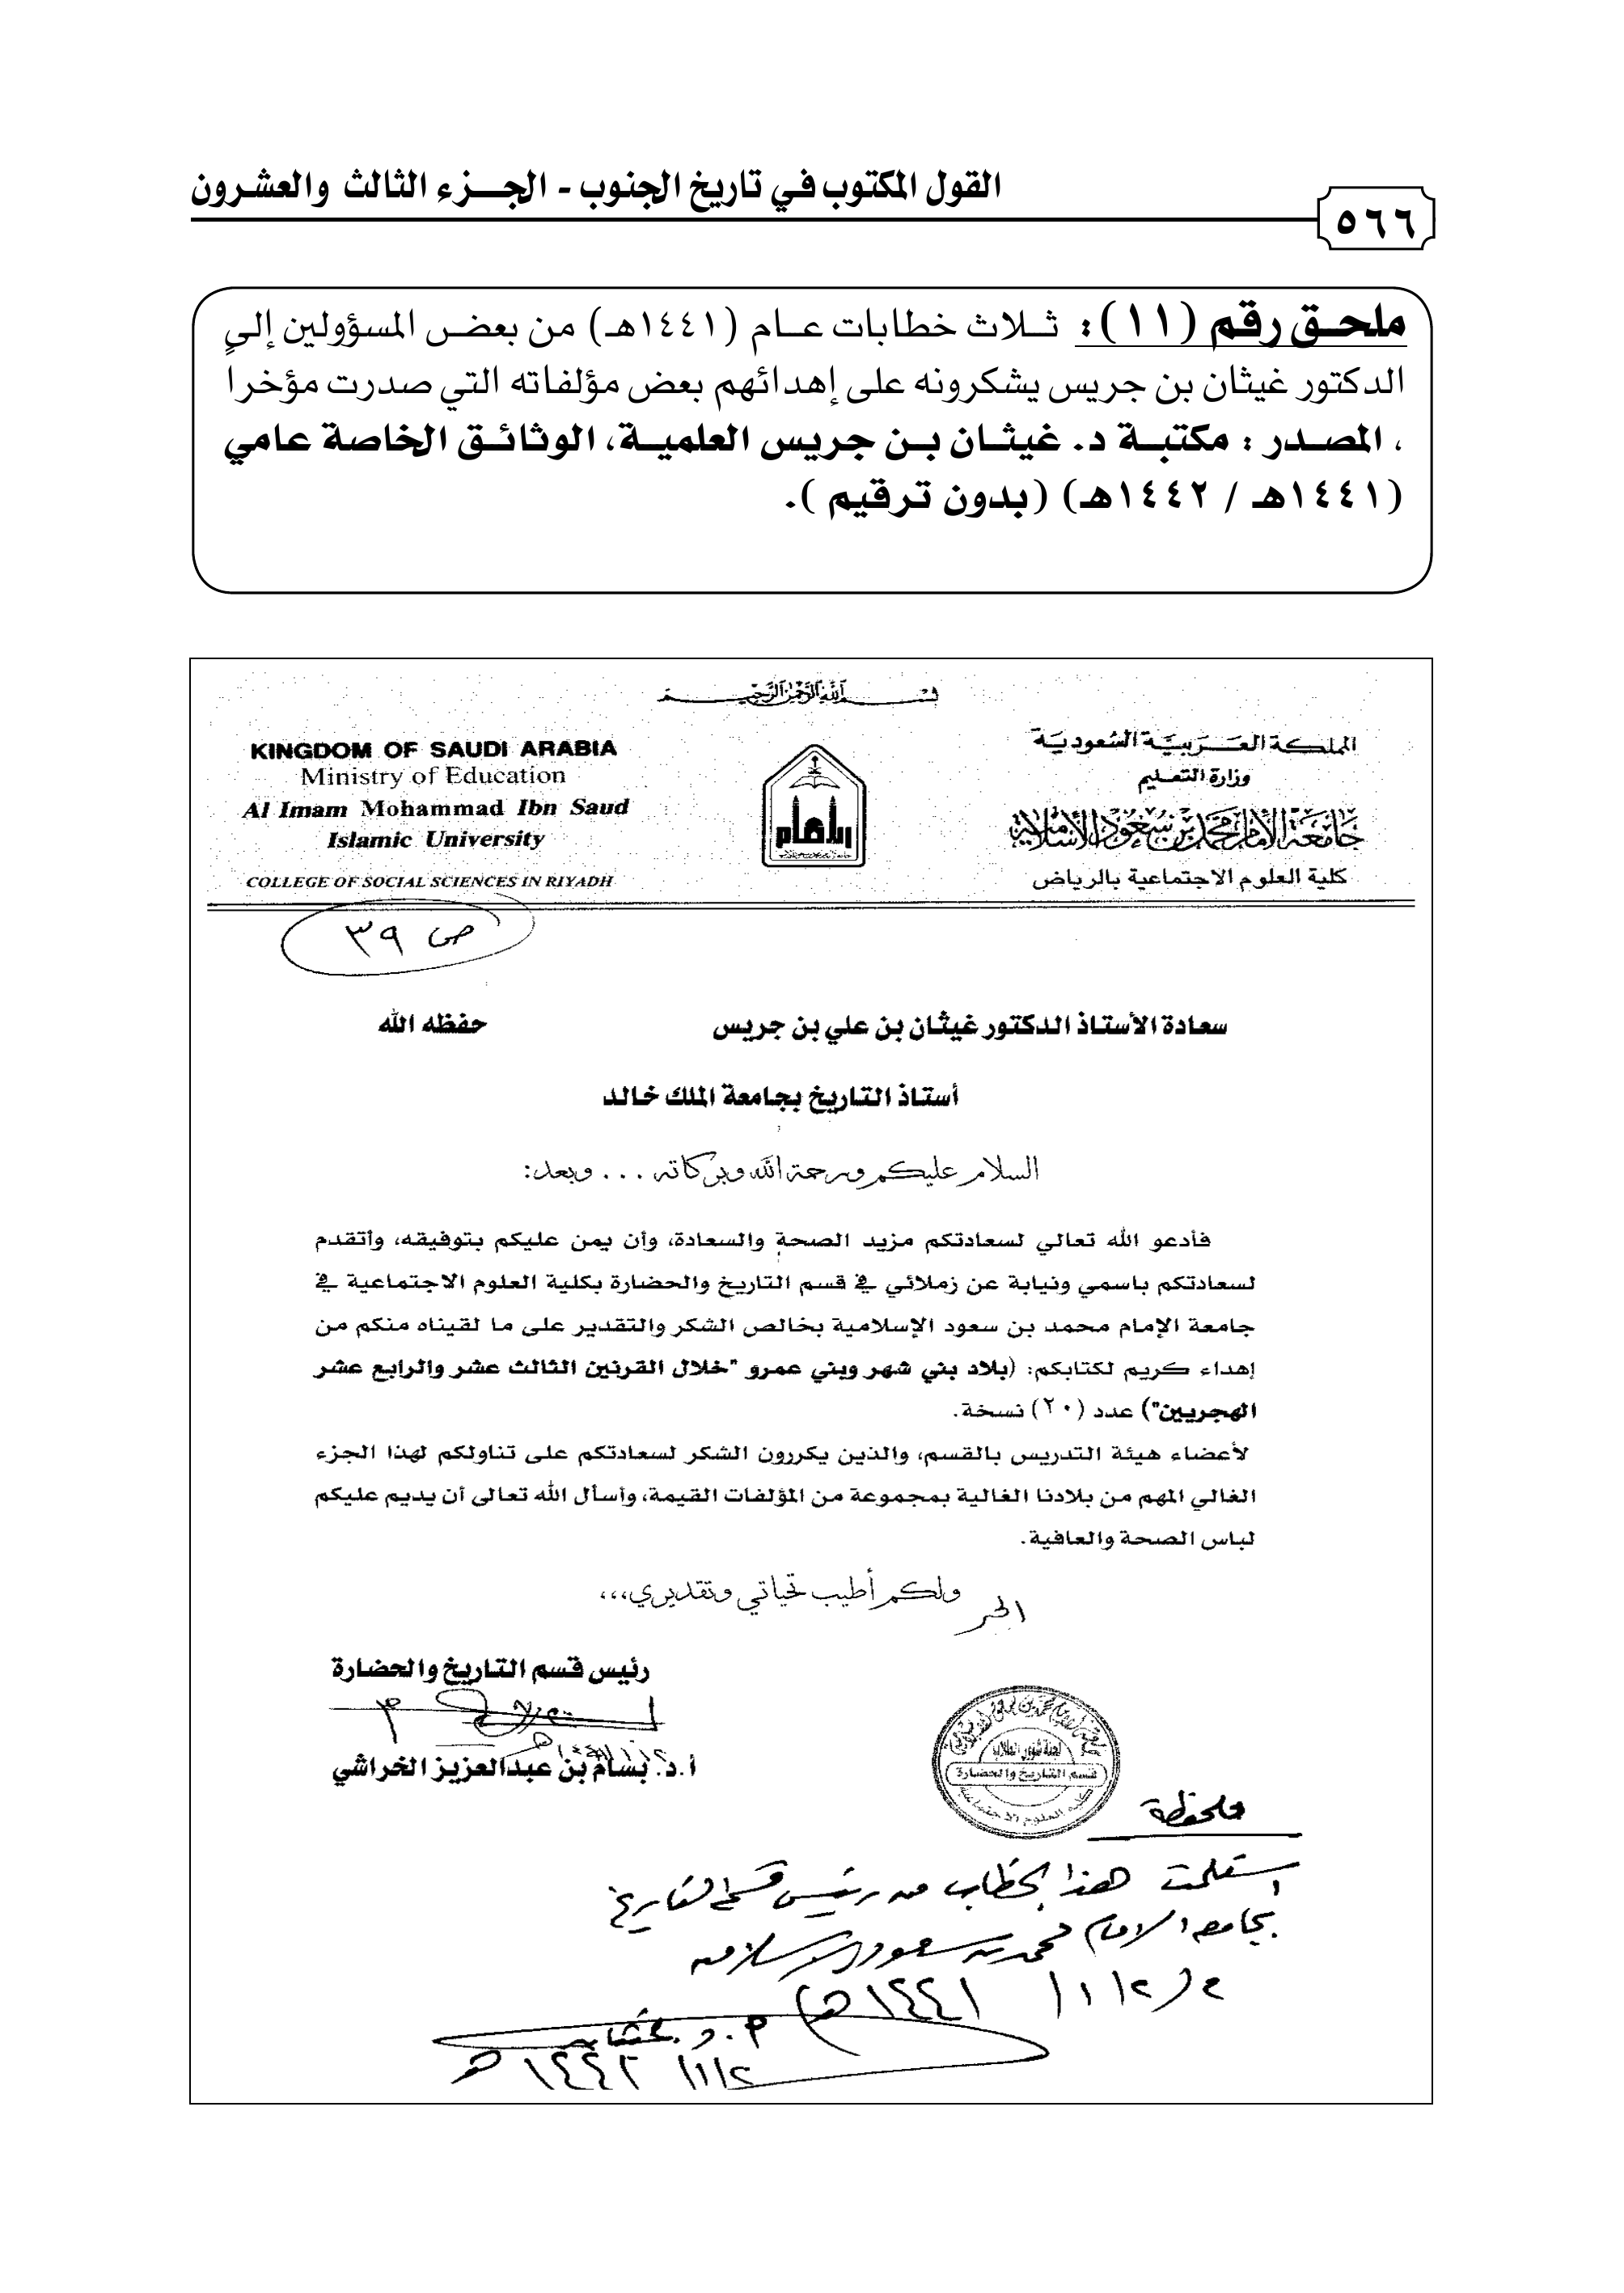 القول المكتوب في تاريخ الجنوب - الجـــزء الثالث والعشرون
٥٦٦
ملحـق رقم (١١): ثـلاث خطابات عـام (١٤٤١هـ) من بعض المسؤولين إلى
الدكتور غيثان بن جريس يشكرونه على إهدائهم بعض مؤلفاته التي صدرت مؤخراً
، المصدر : مكتبة د. غيثان بن جريس العلمية، الوثائق الخاصة عامي
(١٤٤١هـ / ١٤٤٢هـ) (بدون ترقيم ).
بسم الله الرحمن الرحيم
المملكة العربية السعودية
وزارة التعليم
جامعة الإمام محمد بن سعود الإسلامية
كلية العلوم الاجتماعية بالرياض
KINGDOM OF SAUDI ARABIA
Ministry of Education
Al Imam Mohammad Ibn Saud
Islamic University
COLLEGE OF SOCIAL SCIENCES IN RIYADH
ص ٣٩
سعادة الأستاذ الدكتور غيثان بن علي بن جريس حفظه الله
أستاذ التاريخ بجامعة الملك خالد
السلام عليكم ورحمة الله وبركاته ... وبعد:
فأدعو الله تعالي لسعادتكم مزيد الصحة والسعادة، وأن يمن عليكم بتوفيقه، وأتقدم
لسعادتكم باسمي ونيابة عن زملائي في قسم التاريخ والحضارة بكلية العلوم الاجتماعية في
جامعة الإمام محمد بن سعود الإسلامية بخالص الشكر والتقدير على ما لقيناه منكم من
إهداء كريم لكتابكم: (بلاد بني شهر وبني عمرو "خلال القرنين الثالث عشر والرابع عشر
الهجريين") عدد (٢٠) نسخة.
لأعضاء هيئة التدريس بالقسم، والذين يكررون الشكر لسعادتكم على تناولكم لهذا الجزء
الغالي المهم من بلادنا الغالية بمجموعة من المؤلفات القيمة، وأسأل الله تعالى أن يديم عليكم
لباس الصحة والعافية.
ولكم أطيب تحياتي وتقديري،،،
رئيس قسم التاريخ والحضارة
أ.د. بسام بن عبدالعزيز الخراشي
قسم التاريخ والحضارة
كلية العلوم الاجتماعية
ملحوظة
استلمت هذا الخطاب من رئيس قسم التاريخ
بجامعة الإمام محمد بن سعود الإسلامية